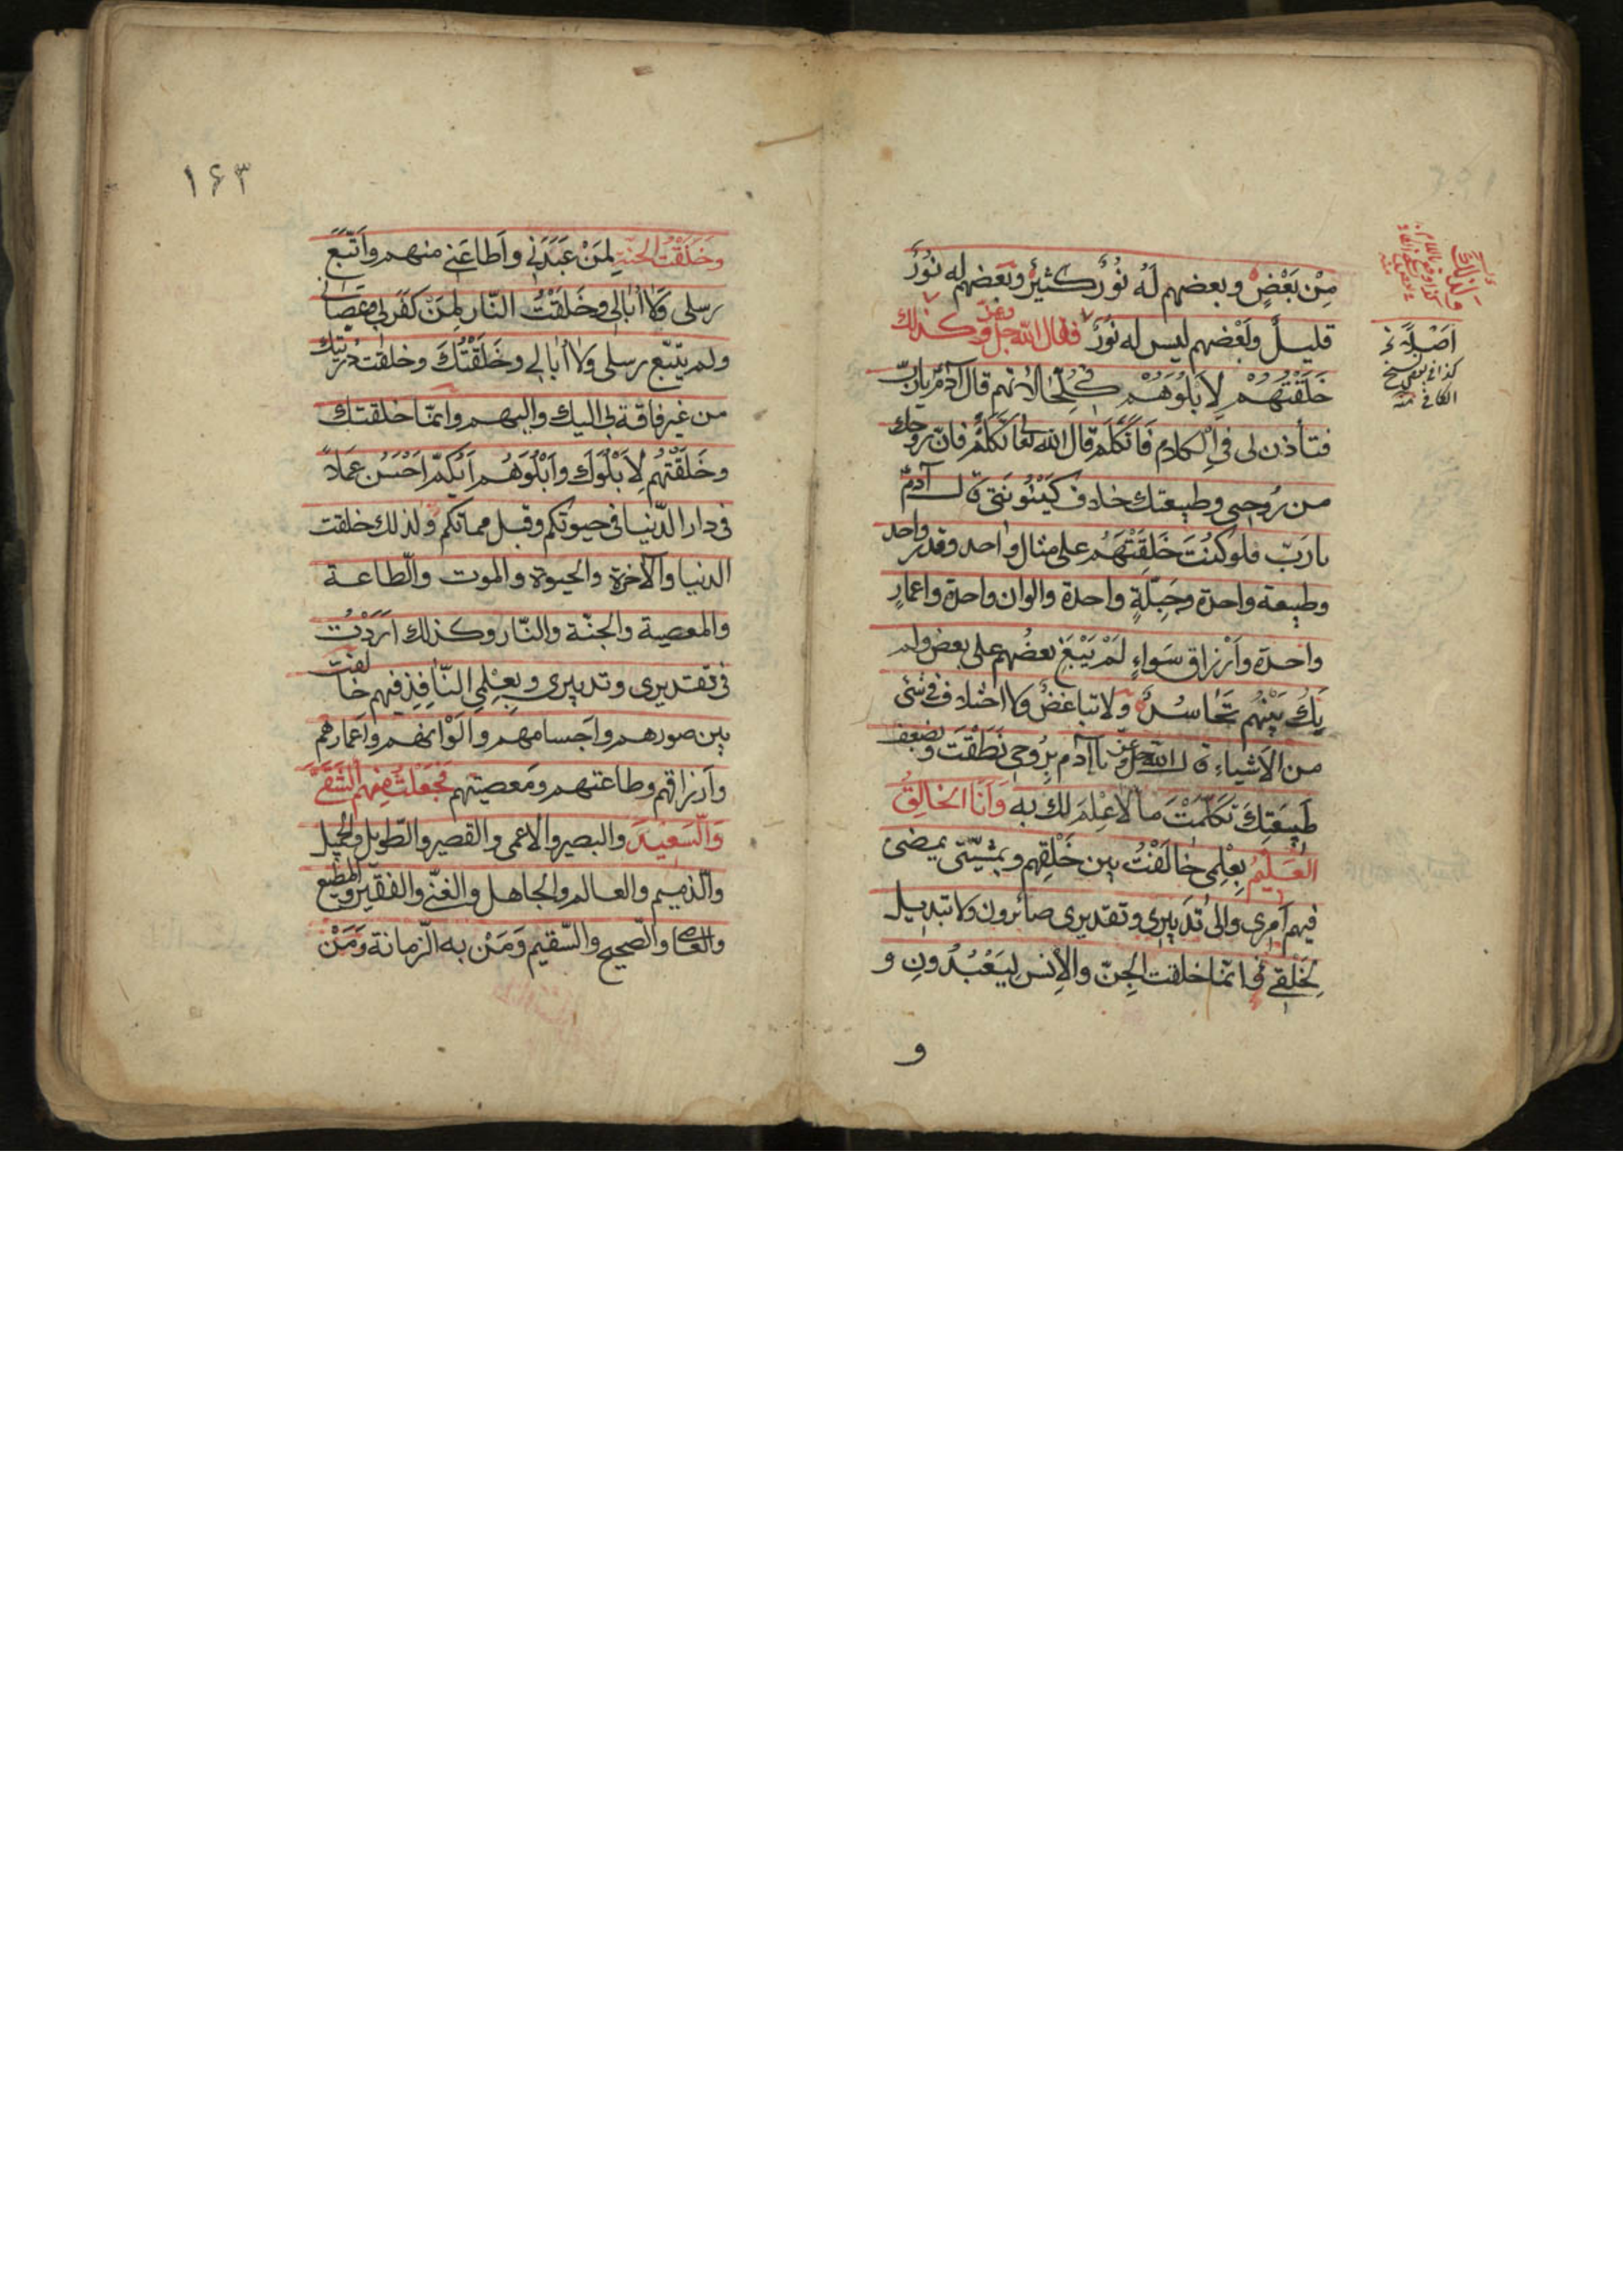 مِنْ بَعْضٍ وبعضهم لَهُ نُورٌ كثيرٌ وبَعضهم له نُورٌ
قليلٌ وبَعْضهم ليس له نُورٌ فقال الله جل وعزّ وكذلك
خَلَقْتُهُمْ لِاَبْلُوَهُمْ في كُلِّ حالاتهم قال آدم يارَبِّ
فتأذن لى فِي الكلام فَاَتَكَلَّمَ قال الله تعا تَكَلَّمْ فانّ روحك
من رُوحِى وطبيعتك خلاف كَيْنُونَتى قال آدمُ
يارَبّ فلو كُنْتَ خَلَقْتَهُم على مثال واحد وقدر واحد
وطبيعة واحدة وجِبِلَّةٍ واحدة والوان واحدة واعمارٍ
واحدة واَرْزاق سَواءٍ لَمْ يَبْغِ بعضُهم على بعض ولم
يَكُ بَيْنَهُم تَحَاسُدٌ ولا تباغضٌ ولا اختلاف فى شئ
من الاَشياءِ قال الله جل وعزّ يا آدم بِرُوحى نَطَقْتَ وبضعف
طَبِيعَتِكَ تَكَلَّمْتَ ما لا عِلْمَ لك به وَاَنَا الخالِقُ
العَلِيمُ بِعِلْمِى خالَفْتُ بين خَلْقِهم وبمَشيّتى يمضى
فيهم اَمرى والىٰ تَدبيرى وتقديرى صائرون ولا تبديل
لِخَلْقى انّما خلقت الجِنّ والاِنس لِيَعْبُدُونِ و
و
ولذلك
اَصْبِلَةً خ
كذا فى بعض نسخ
الكافى منه
١۶٣
وَخَلَقْتُ الجنّة لِمَنْ عَبَدَنى واَطاعَنى منهم واتَّبَعَ
رسلى وَلا اُبالى وخَلَقْتُ النّار لِمَنْ كَفَرَ بى وعَصانى
ولم يتّبع رسلى ولا اُبالى وخَلَقْتُكَ وخلقت ذُرّيّتك
من غير فاقة بى اليك واليهم وانّما خلقتك
وخَلَقْتُهُم لِاَبْلُوَك واَبْلُوَهُم اَيُّكُمْ اَحْسَنُ عَمَلاً
فى دار الدّنيا فى حيوتكم وقبل مماتكم ولذلك خلقت
الدنيا والآخرة والحيوة والموت والطّاعة
والمعصية والجنّة والنّار وكذلك اَرَدْتُ
فى تقديرى وتدبيرى وبِعِلْمى النّافِذِ فيهم خالفت
بين صورهم واَجسامهم واَلْوانهم واَعمارهم
واَرزاقهم وطاعتهم ومَعصيتهم فجَعَلْتُ مِنهم الشَّقىَّ
وَالسَعِيدَ والبصير والاعمى والقصير والطّويل والجميل
والذّميم والعالم والجاهل والغنىّ والفقير والمطيع
والعاصى والصّحيح والسّقيم وَمَنْ به الزّمانة وَمَنْ